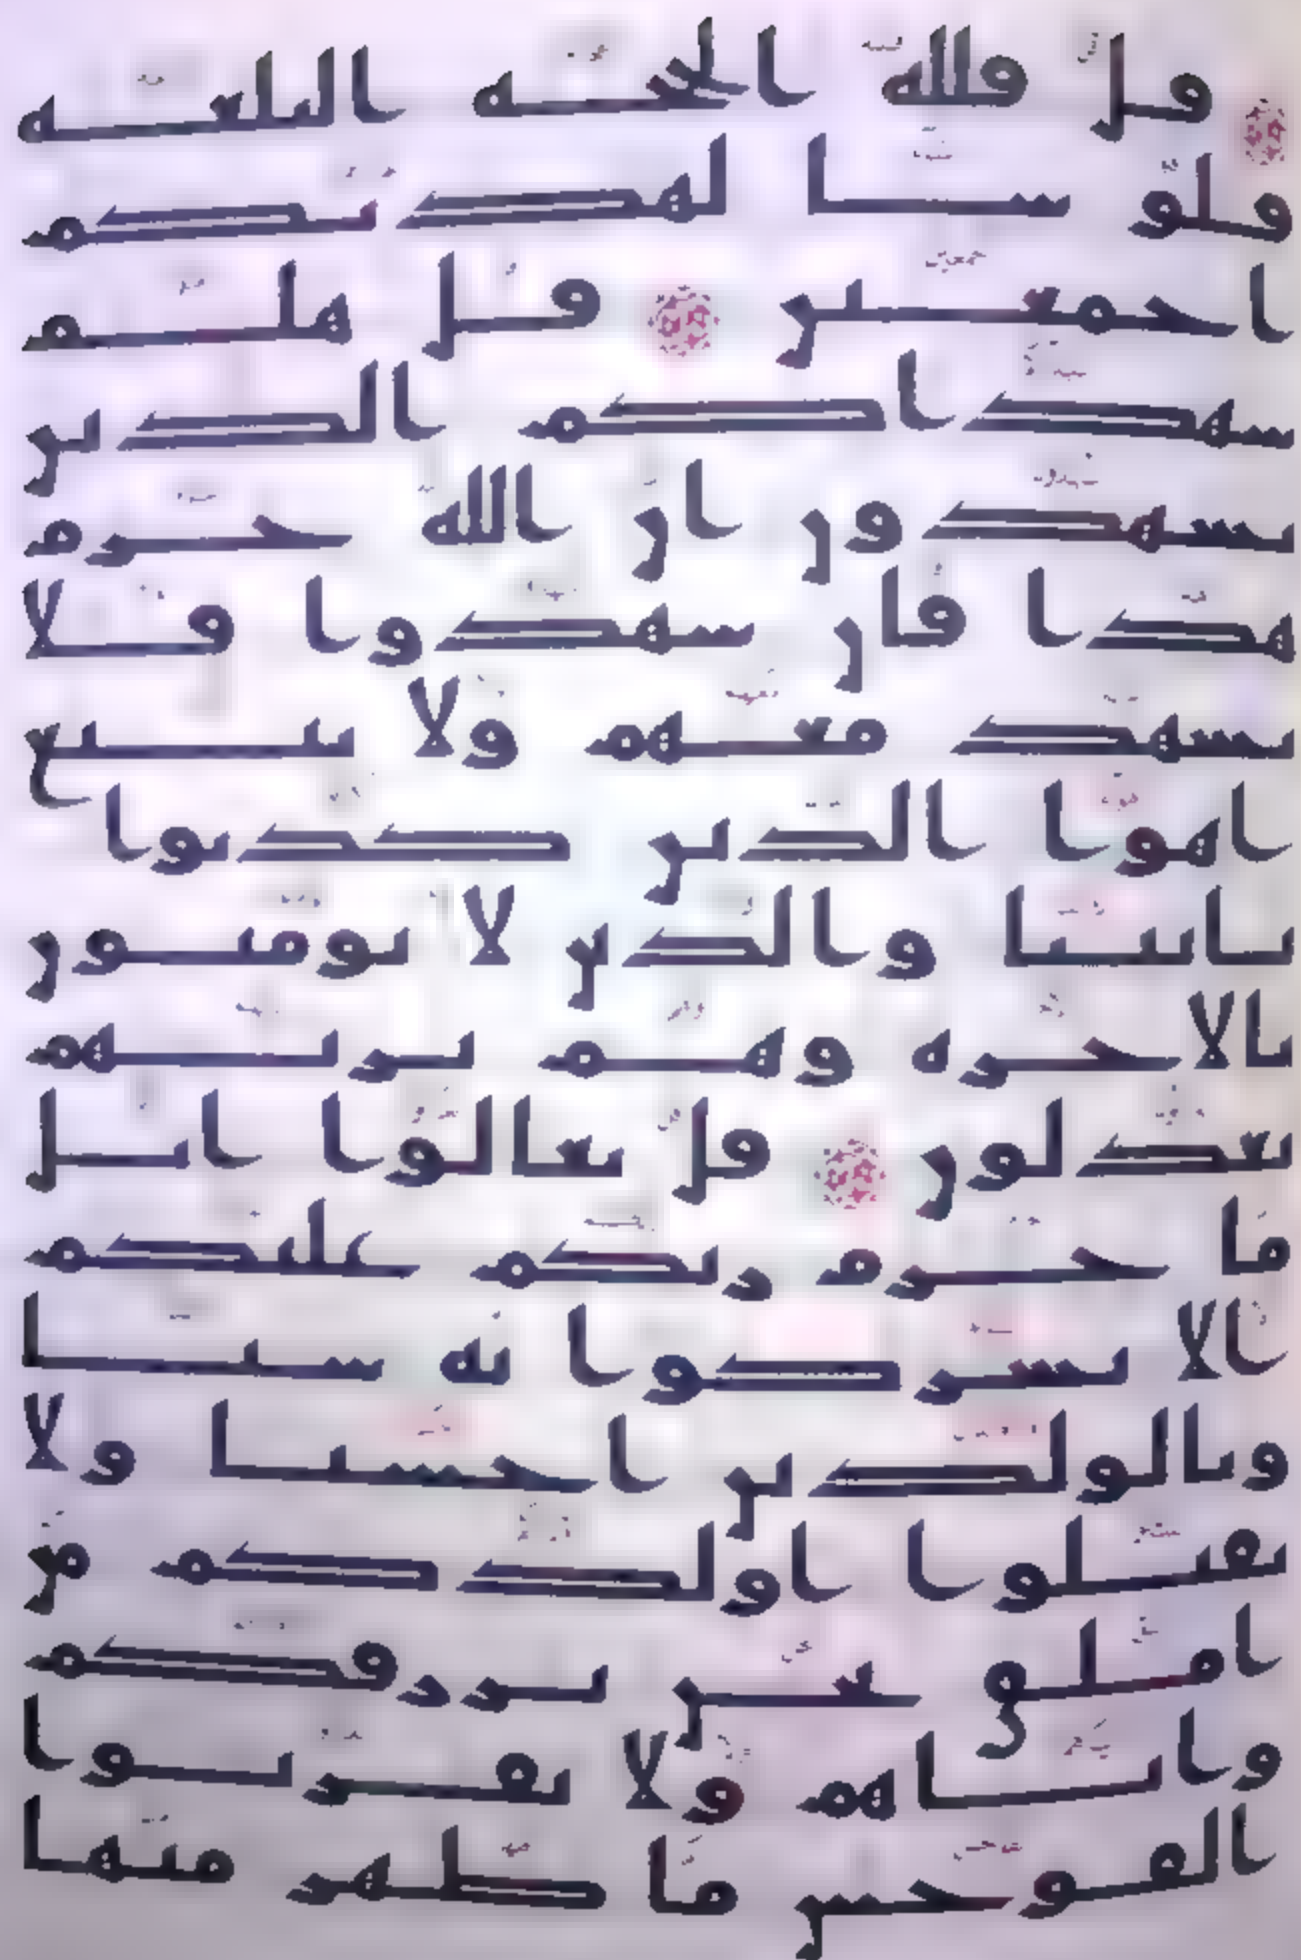 قل فلله الحجة البلغة
فلو شا لهدىكم
اجمعين قل هلم
شهداكم الذين
يشهدون ان الله حرم
هذا فان شهدوا فلا
تشهد معهم ولا تتبع
اهوا الذين كذبوا
باىتنا والذين لا يومنون
بالاخره وهم بربهم
يعدلون قل تعالوا اتل
ما حرم ربكم عليكم
الا تشركوا به شيا
وبالولدين احسنا ولا
تقتلوا اولدكم من
املق نحن نرزقكم
واياهم ولا تقربوا
الفوحش ما ظهر منها